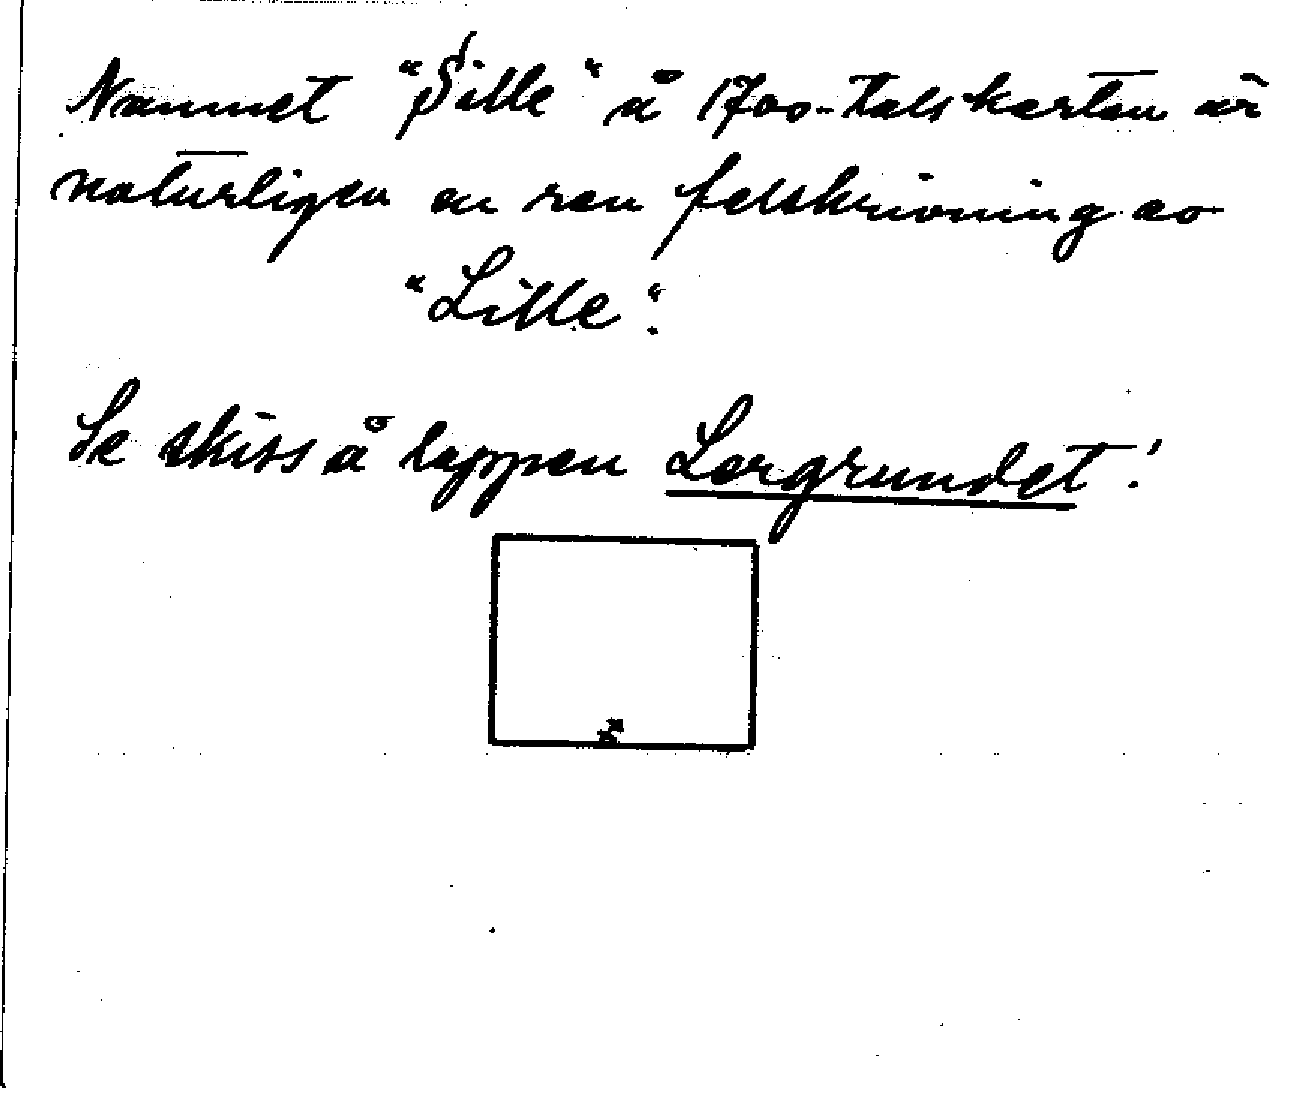 Namnet "Sille" å 1700-talskartan är
naturligen en ren felskrivning av
"Lille".
Se skiss å lappen Lergrundet!